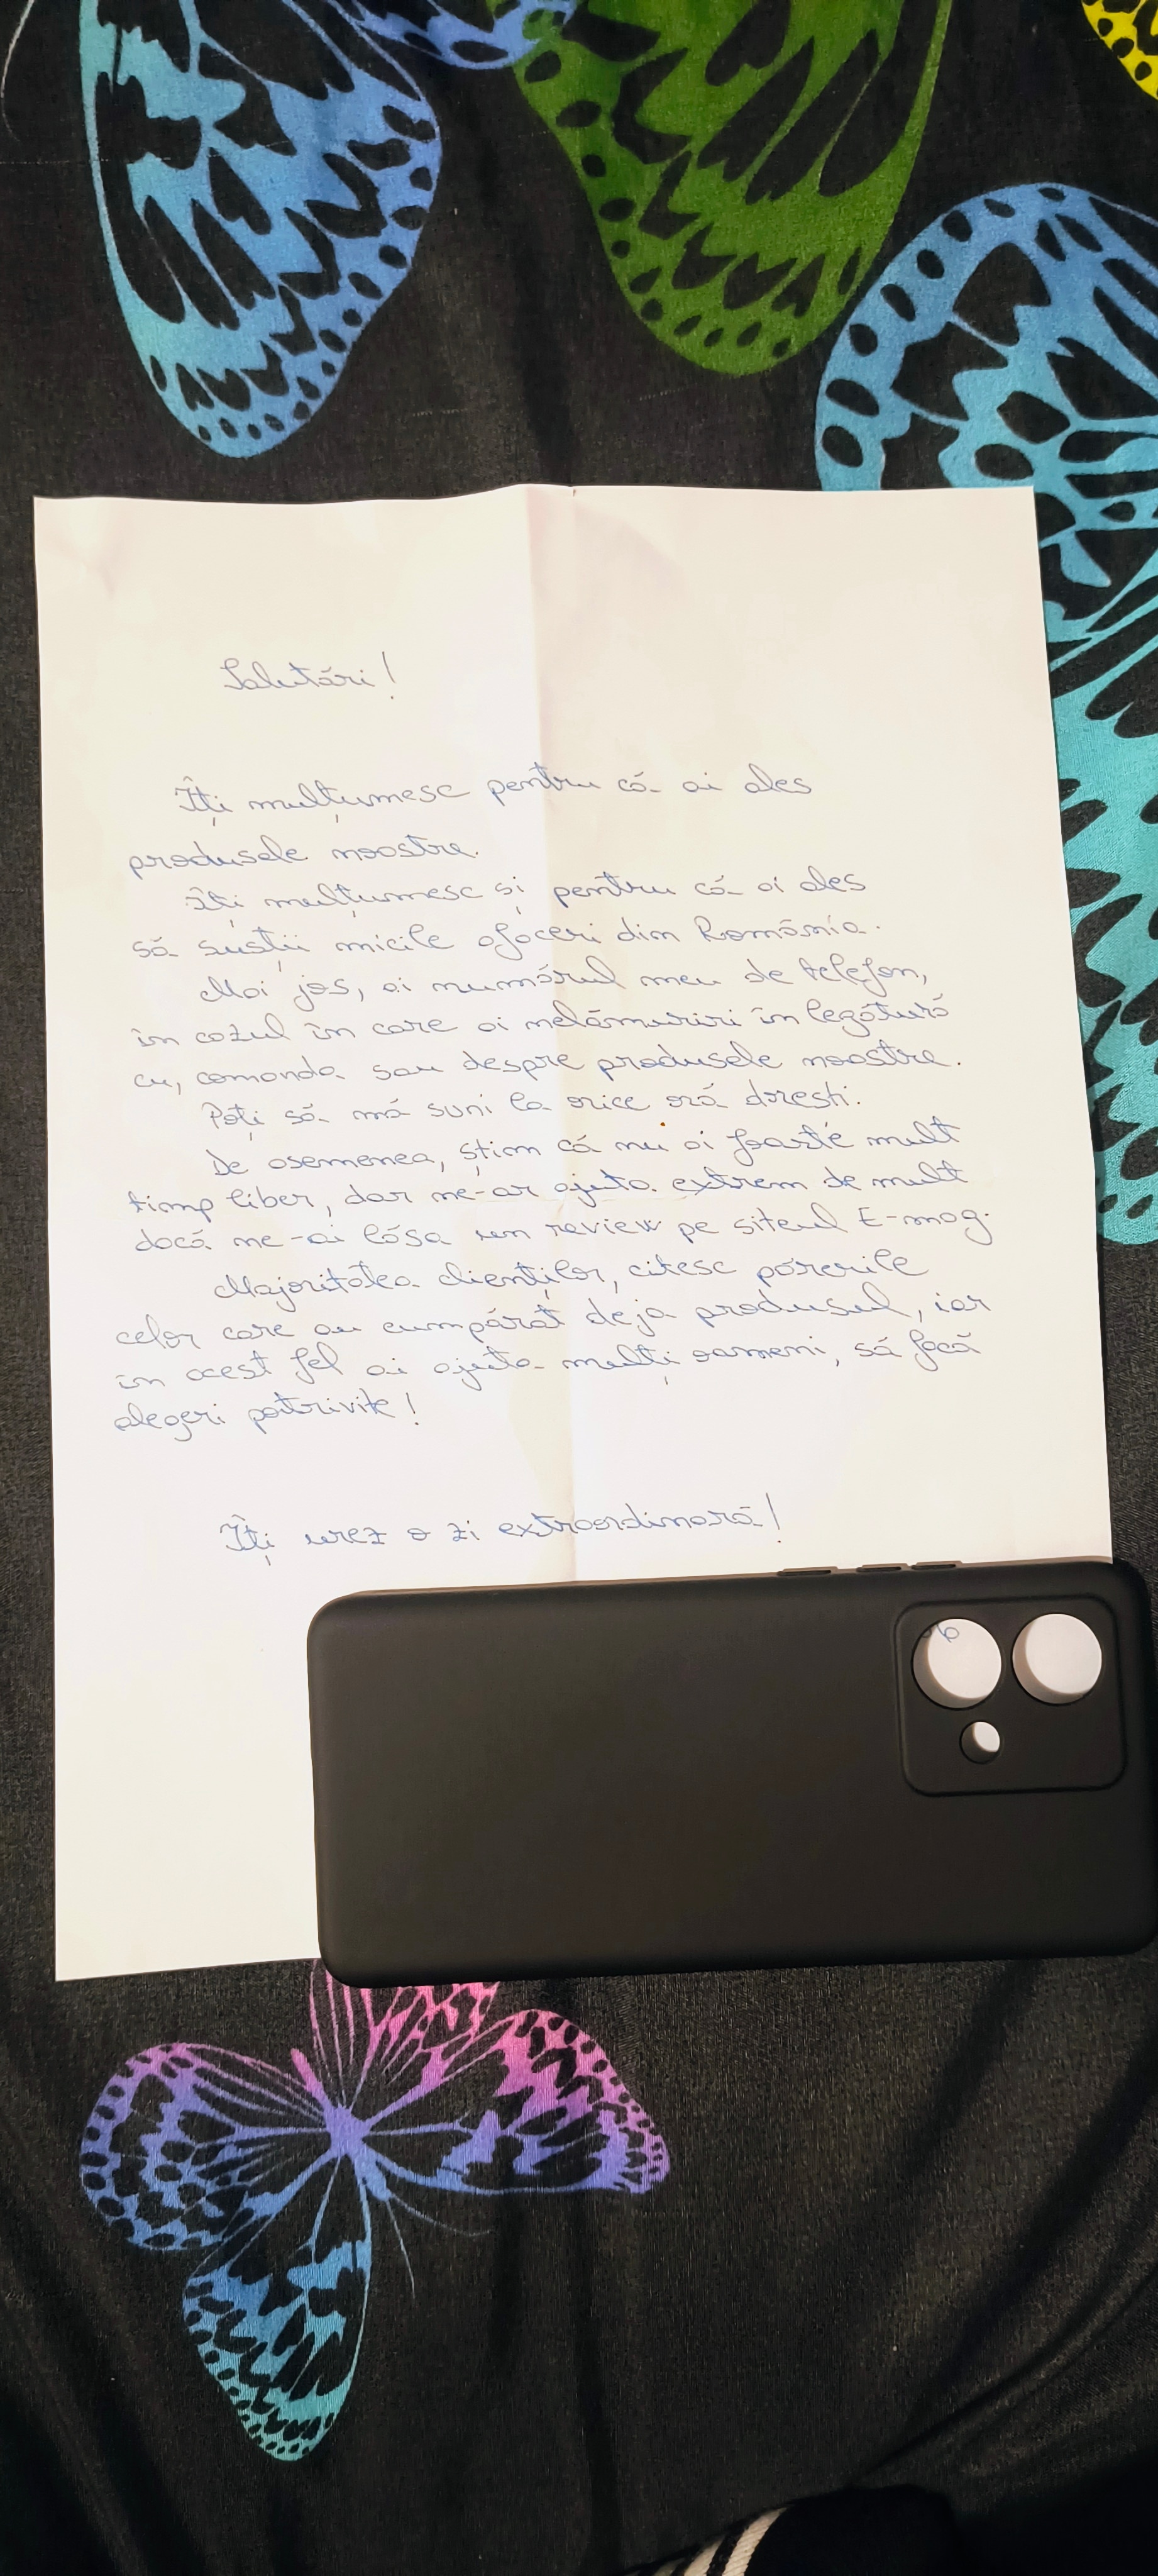 Salutări!
Îți mulțumesc pentru că ai ales
produsele noastre.
Îți mulțumesc și pentru că ai ales
să susții micile afaceri din România.
Mai jos, ai numărul meu de telefon,
în cazul în care ai nelămuriri în legătură
cu, comanda sau despre produsele noastre.
Poți să mă suni la orice oră dorești.
De asemenea, știm că nu ai foarte mult
timp liber, dar ne-ar ajuta extrem de mult
dacă ne-ai lăsa un review pe siteul E-mag.
Majoritatea clienților, citesc părerile
celor care au cumpărat deja produsul, iar
în acest fel ai ajuta mulți oameni, să facă
alegeri potrivite!
Îți urez o zi extraordinară!